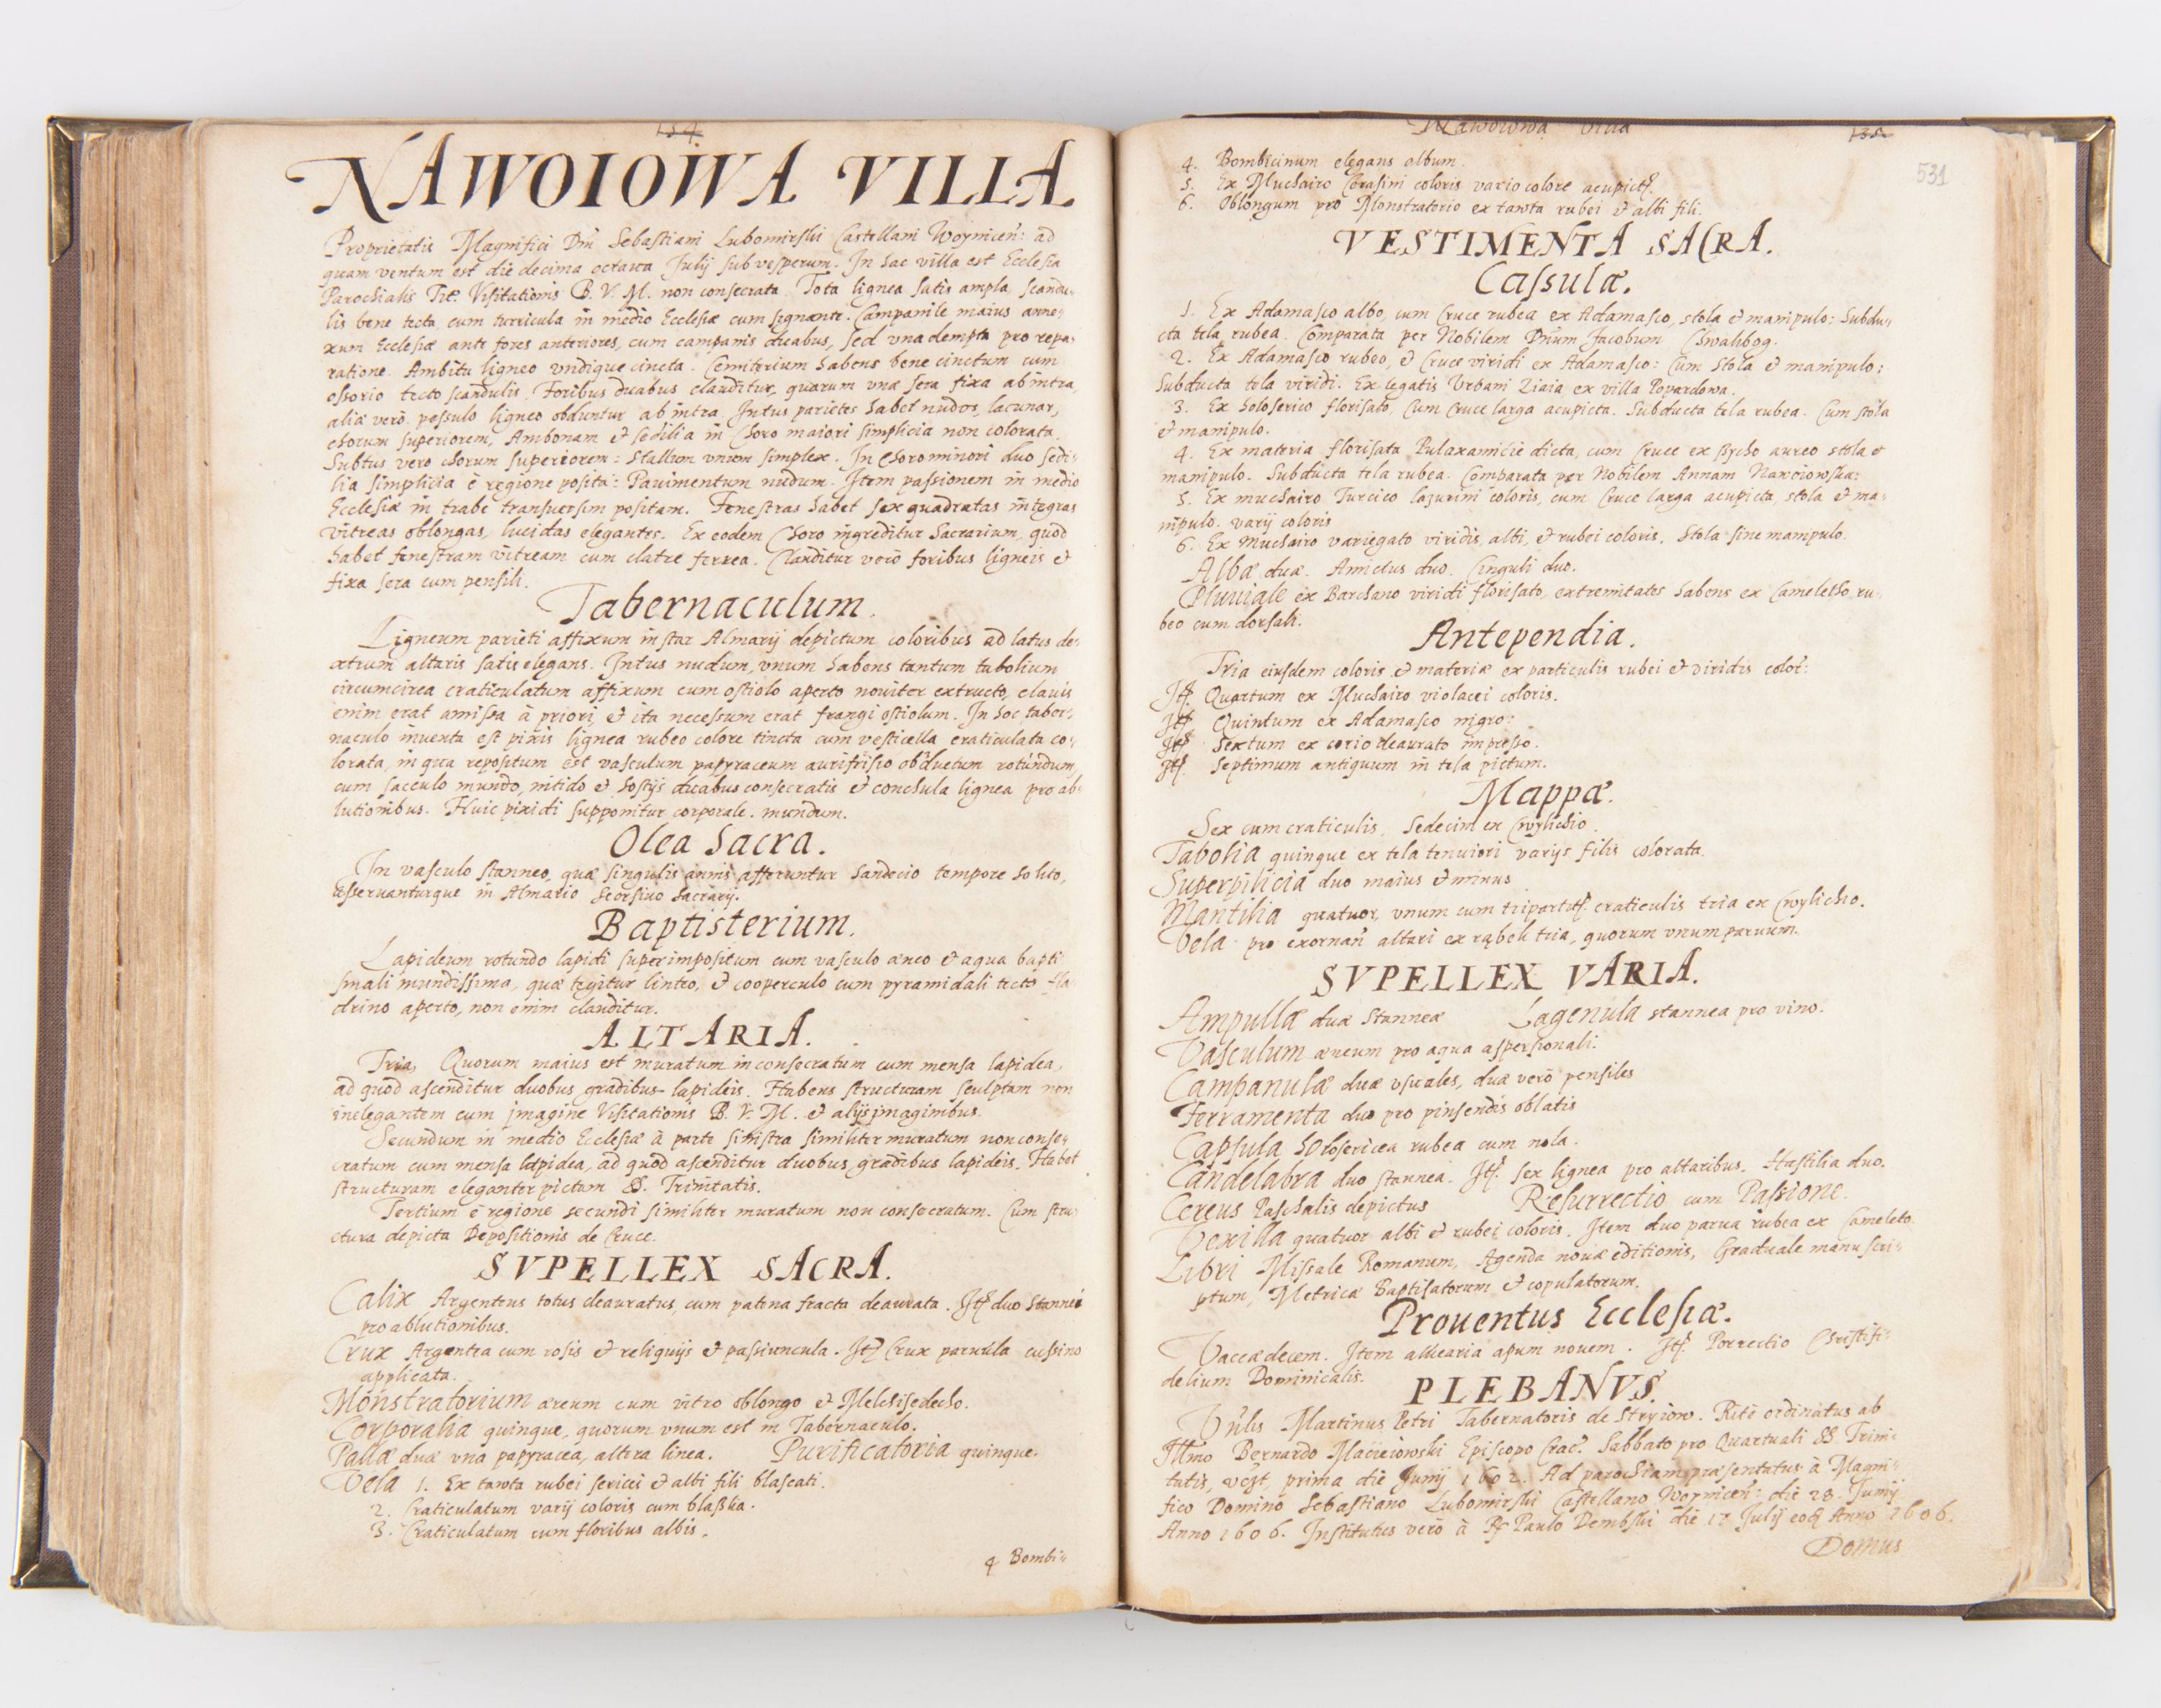 134.
NAWOIOWA VILLA
Proprietatis Magnifici Dñi Sebastiani Lubomirski Castellani Woynicen: ad
quam ventum est die decima octaua Julij sub vesperum. In hac villa est Ecclesia
Parochialis Tit. Visitationis B. V. M. non consecrata. Tota lignea satis ampla scandu,
lis bene tecta cum turricula in medio Ecclesiæ cum signante. Campanile maius anne,
xum Ecclesiæ ante fores anteriores, cum campanis duabus, sed vna dempta pro repa,
ratione. Ambitu ligneo vndique cincta. Cemiterium habens bene cinctum cum
ossorio tecto scandulis. Foribus duabus clauditur, quarum vna sera fixa ab intra,
alia verò pessulo ligneo obduntur ab intra. Intus parietes habet nudos, lacunar,
chorum superiorem, Ambonam et sedilia in Choro maiori simplicia non colorata.
Subtus vero chorum superiorem: Stallum vnum simplex. In Choro minori duo sedi,
lia simplicia è regione posita: Pauimentum nudum. Item passionem in medio
Ecclesiæ in trabe transuersim positam. Fenestras habet sex quadratas integras
vitreas oblongas, lucidas elegantes. Ex eodem Choro ingreditur Sacrarium, quod
habet fenestram vitream cum clatre ferrea. Clauditur verò foribus ligneis et
fixa sera cum pensili.
Tabernaculum.
Ligneum parieti affixum instar Almarij depictum coloribus ad latus de,
xtrum altaris satis elegans. Intus nudum, vnum habens tantum taboliam
circumcirca craticulatum affixum cum ostiolo aperto nouiter extructo, clauis
enim erat amissa à priori, et ita necessum erat frangi ostiolum. In hoc taber,
naculo inuenta est pixis lignea rubeo colore tincta cum vesticella craticulata co,
lorata, in qua repositum est vasculum papyraceum aurifrisio obductum rotundum,
cum sacculo mundo, nitido et hostijs duabus consecratis et conchula lignea pro ab,
lutionibus. Huic pixidi supponitur corporale mundum.
Olea Sacra.
In vasculo stanneo, quæ singulis annis afferuntur Sandecio tempore solito,
asseruanturque in Almario seorsiuo Sacrarij.
Baptisterium.
Lapideum rotundo lapidi superimpositum cum vasculo æneo et aqua bapti
smali mundissima, quæ tegitur linteo, et cooperculo cum pyramidali tecto
drino aperto, non enim clauditur.
ALTARIA.
Tria, Quorum maius est muratum inconsecratum cum mensa lapidea,
ad quod ascenditur duobus gradibus lapideis. Habens structuram sculptam non
inelegantem cum imagine Visitationis B. V. M. et alijs imaginibus.
Secundum in medio Ecclesiæ à parte sinistra similiter muratum non conse,
cratum cum mensa lapidea, ad quod ascenditur duobus gradibus lapideis. Habet
structuram eleganter pictam SS. Trinitatis.
Tertium è regione secundi similiter muratum non consecratum. Cum stru,
ctura depicta Depositionis de Cruce.
SVPELLEX SACRA.
Calix Argenteus totus deauratus, cum patena fracta deaurata. Itẽ duo Stannei
pro ablutionibus.
Crux Argentea cum rosis et reliquijs et passiuncula. Itẽ Crux paruula cussino
applicata.
Monstratorium æreum cum vitro oblongo et Melchisedecho.
Corporalia quinque, quorum vnum est in Tabernaculo.
Pallæ duæ vna papyracea, altera linea. Purificatoria quinque.
Vela 1. Ex tawta rubei serici et albi fili blascati.
2. Craticulatum varij coloris cum blaßka.
3. Craticulatum cum floribus albis.
4 Bombi,
Nawoiowa Villa
135
531
4. Bombicinum elegans album.
5. Ex Muchairo Cerasini coloris vario colore acupictũ.
6. Oblongum pro Monstratorio ex tawta rubei et albi fili.
VESTIMENTA SACRA.
Cassulæ.
1. Ex Adamasco albo, cum Cruce rubea ex Adamasco, stola et manipulo: Subdu,
cta tela rubea. Comparata per Nobilem Dñum Jacobum Chwalibog.
2. Ex Adamasco rubeo, et Cruce viridi ex Adamasco: Cum Stola et manipulo:
Subducta tela viridi. Ex legatis Vrbani Ziaia ex villa Popardowa.
3. Ex holoserico florisato, Cum Cruce larga acupicta. Subducta tela rubea. Cum stola
et manipulo.
4. Ex materia florisata dicta, cum Cruce ex aureo stola et
manipulo. Subducta tela rubea. Comparata per Nobilem Annam Nawoiowska:
5. Ex muchairo Turcico lazurini coloris, cum Cruce larga acupicta stola et ma,
nipulo. varij coloris
6. Ex Muchairo variegato viridis, albi, et rubei coloris, Stola sine manipulo.
Albæ duæ. Amictus duo. Cinguli duo.
Pluuiale ex Barchano viridi florisato, extremitates habens ex Cameletho ru,
beo cum dorsali.
Antependia.
Tria eiusdem coloris et materiæ ex particulis rubei et viridis color:
Itẽ. Quartum ex Muchairo violacei coloris.
Itẽ Quintum ex Adamasco nigro:
Itẽ Sextum ex corio deaurato impresso.
Itẽ. Septimum antiquum in tela pictum.
Mappæ.
Sex cum craticulis, Sedecim ex Cwylichio.
Tabolia quinque ex tela tenuiori varijs filis colorata.
Superpilicia duo maius et minus
Mantilia quatuor, vnum cum tripartitẽ craticulis tria ex Cwylicho.
Vela pro exornañ altari ex rąbek tria, quorum vnum paruum.
SVPELLEX VARIA.
Ampullæ duæ Stanneæ Lagenula stannea pro vino.
Vasculum æneum pro aqua aspersionali.
Campanulæ duæ vsuales, duæ verò pensiles
Ferramenta duo pro pinsendis oblatis
Capsula holosericea rubea cum nola.
Candelabra duo stannea. Itẽ. sex lignea pro altaribus. Hastilia duo.
Cereus Paschalis depictus Resurrectio cum Passione.
Vexilla quatuor albi et rubei coloris. Item duo parua rubea ex Cameleto.
Libri Missale Romanum, Agenda nouæ editionis, Graduale manu scri,
ptum, Metricæ Baptisatorum et copulatorum.
Prouentus Ecclesiæ.
Vaccæ decem. Item aluearia apum nouem. Itẽ. Porrectio Christifi,
delium Dominicalis.
PLEBANVS.
Vñlis Martinus Petri Tabernatoris de Stryiow. Ritè ordinatus ab
Illmo Bernardo Macieiowski Episcopo Crac. Sabbato pro Quartuali SS. Trini,
tatis, prima die Junij 1602. Ad parochiam præsentatus à Magni,
fico Domino Sebastiano Lubomirski Castellano Woynicen: die 28. Junij
Anno 1606. Institutus verò à Paulo Dembski die 17 Julij eod Anno 1606.
Domus